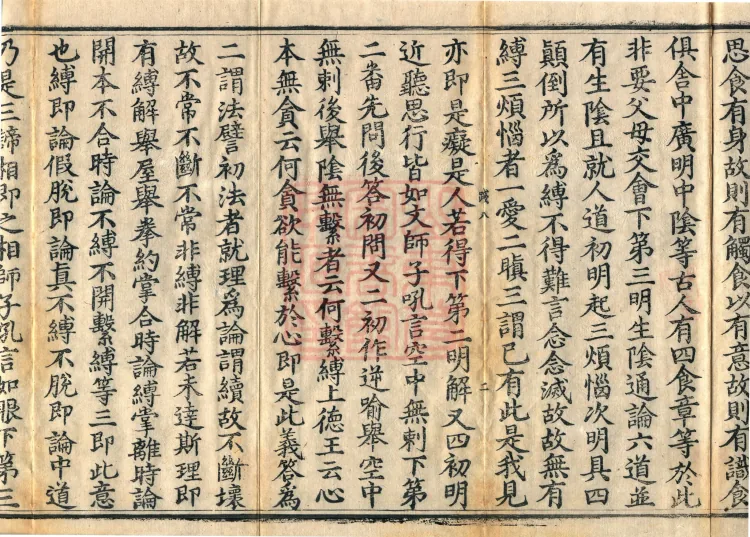 思食有身故則有觸食以有意故則有識食
俱舍中廣明中陰等古人有四食章等於此
非要父母交會下第三明生陰通論六道並
有生陰且就人道初明起三煩惱次明具四
顛倒所以爲縛不得難言念念滅故故無有
縛三煩惱者一愛二瞋三謂已有此是我見
践八 二
亦即是癡是人若得下第二明解又四初明
近聽思行皆如文師子吼言空中無刺下第
二番先問後答初問又二初作逆喻舉空中
無刺後舉陰無繫者云何繫縛上德王云心
本無貪云何貪欲能繫於心即是此義答爲
二謂法譬初法者就理爲論謂續故不斷壞
故不常不斷不常非縛非解若未達斯理即
有縛解舉屋舉拳約掌合時論縛掌離時論
開本不合時論不縛不開繫縛等三即此意
也縛即論假脫即論真不縛不脫即論中道
乃是三諦相即之相師子吼言如眼下第三